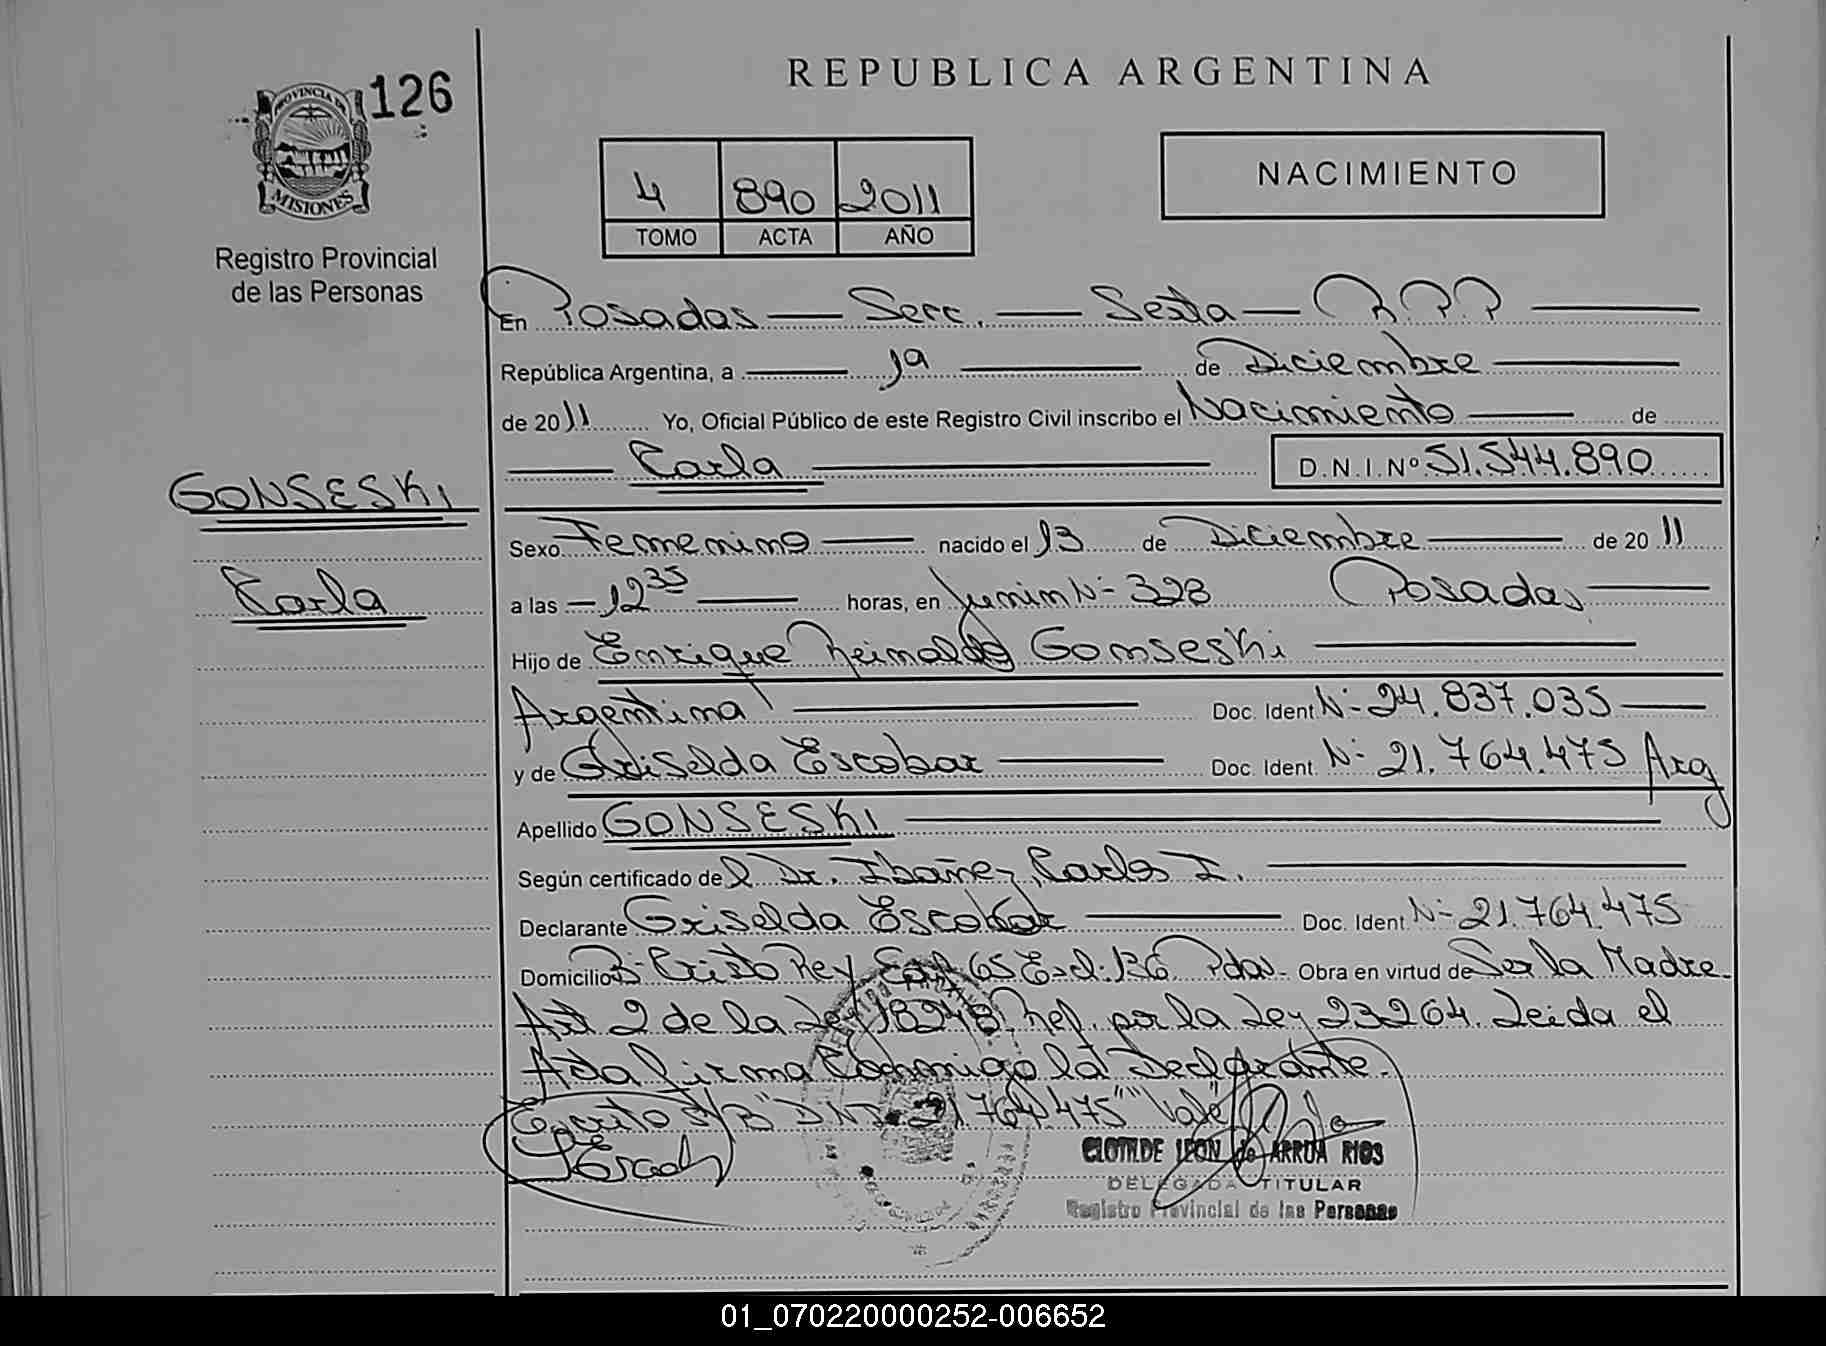 126
PROVINCIA DE
MISIONES
Registro Provincial
de las Personas
REPUBLICA ARGENTINA
4 890 2011
TOMO ACTA AÑO
NACIMIENTO
En Posadas — Secc. — Sexta — R.P.P
República Argentina, a 19 de Diciembre
de 2011 Yo, Oficial Público de este Registro Civil inscribo el Nacimiento de
Carla D.N.I.Nº 51.544.890
GONSESKI
Carla
Sexo Femenino nacido el 13 de Diciembre de 2011
a las 12 35 horas, en Junin Nº 328 Posadas
Hijo de Enrique Reinaldo Gonseski
Argentina Doc. Ident Nº 24.837.035
y de Griselda Escobar Doc. Ident. Nº 21.764.475 Arg
Apellido GONSESKI
Según certificado del Dr. Ibañez, Carlos I.
Declarante Griselda Escobar Doc. Ident Nº 21.764.475
Domicilio Bº Cristo Rey 65 Pdas. Obra en virtud de Ser la Madre.
Art 2 de la Ley 18248 Ref. por la Ley 23264. Leida el
Acta firma conmigo la Declarante.
Escrito S/B "DNI 21.764.475" "Vale"
GEscobar
CLOTILDE LEON de ARRUA RIOS
DELEGADA TITULAR
Registro Provincial de las Personas
01_070220000252-006652